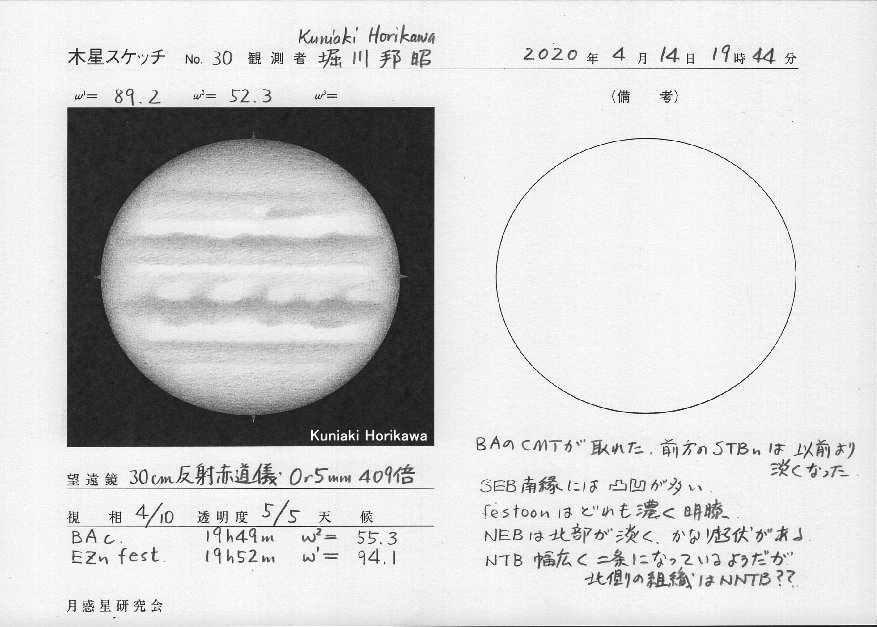 Kuniaki Horikawa
木星スケッチ No. 30 観測者 堀川邦昭 2020年 4月 14日 19時 44分
ω¹= 89.2 ω²= 52.3 ω³=
(備 考)
Kuniaki Horikawa
望遠鏡 30cm反射赤道儀 Or5mm 409倍
視 相 4/10 透明度 5/5 天 候
BAc. 19h49m ω²= 55.3
EZn fest. 19h52m ω¹= 94.1
月惑星研究会
BAのCMTが取れた。前方のSTBnは以前より
淡くなった
SEB南縁には凸凹が多い
festoonはどれも濃く明瞭
NEBは北部が淡く、かなり起伏がある
NTB 幅広く二条になっているようだが
北側の組織はNNTB??